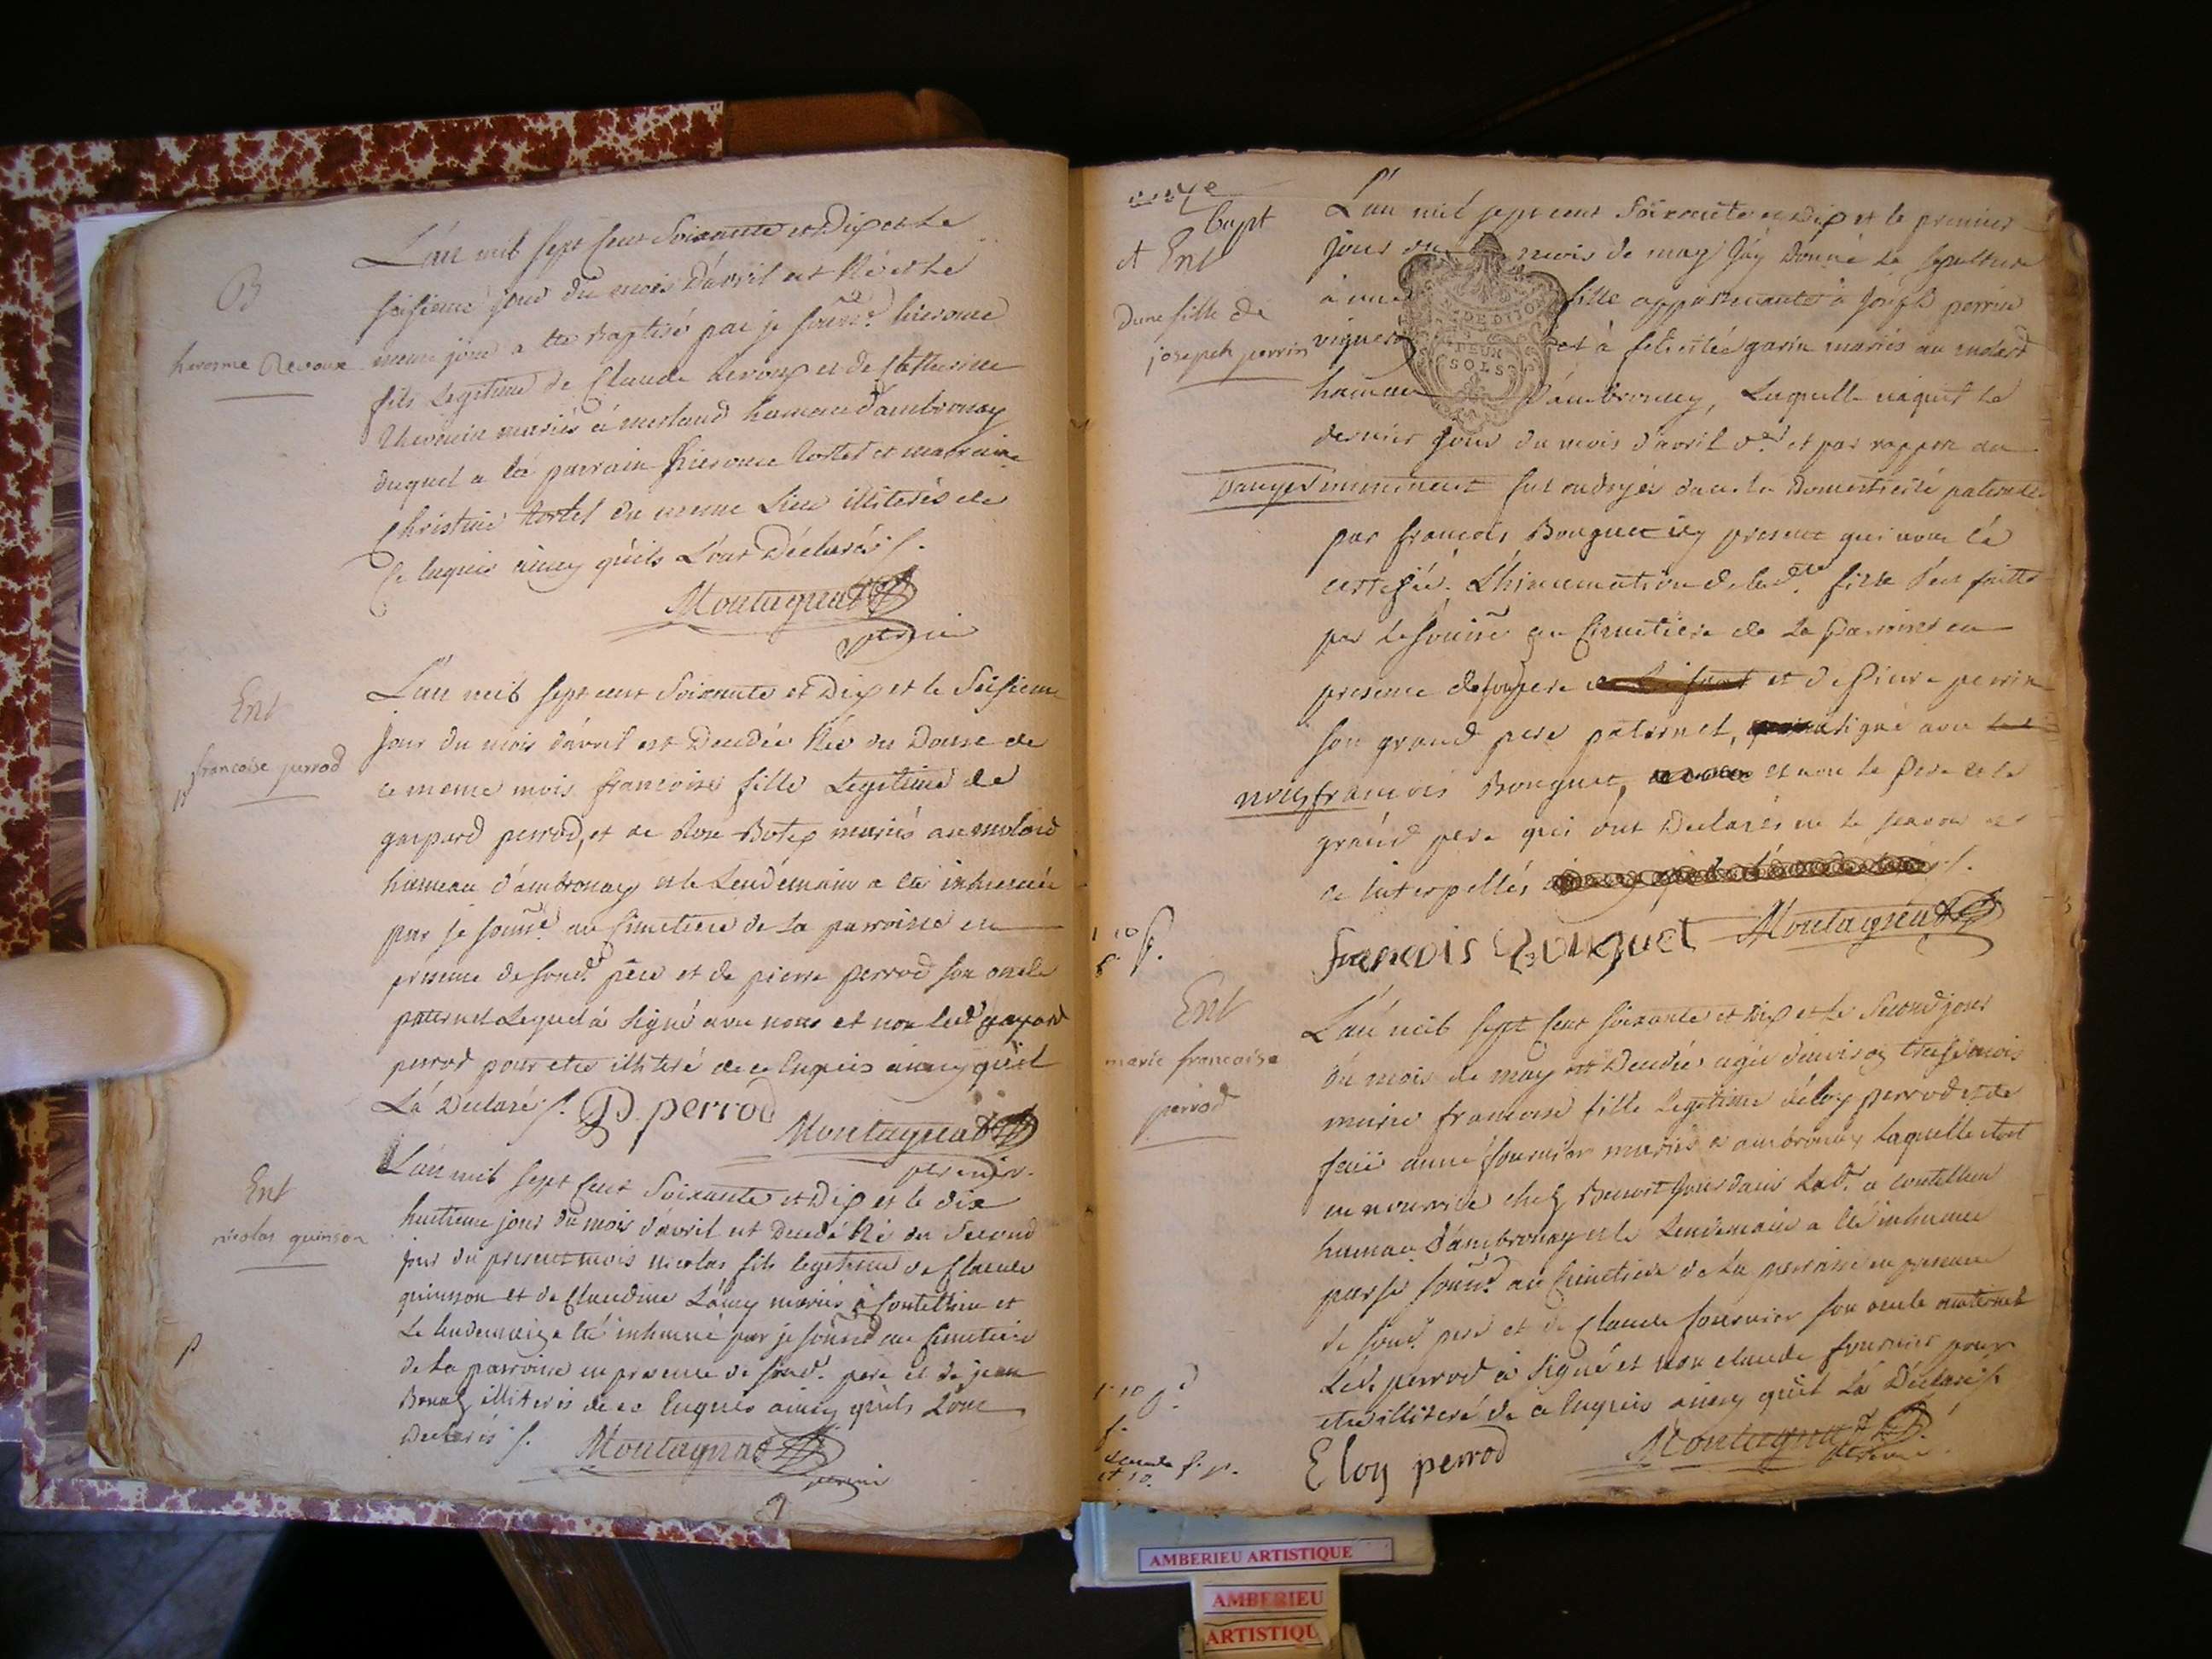 B
hierosme Reroux
L'an mil sept cent Soixante et Dix et le
seisieme jour du mois d'avril est Né et le
meme jour a été Baptisé par je soussé hierome
fils Legitime de Claude Reroux et de Catherine
mariés à merland hameau d'ambronay
duquel a été parrain hierome tortel et marraine
Christine tortel du meme Lieu illiterés de
Ce Enquis ainsy qu'ils L'ont Déclarés /.
Montagnat
Ent
francoise perrod
L'an mil sept cent Soixante et Dix et le Seisieme
jour du mois d'avril est Decedée Née du Douse de
ce meme mois francoise fille Legitime de
gaspard perrod, et de Rose Botex mariés au molard
hameau d'ambronay et le Lendemain a été inhumée
par je soussé au Cimetiere de La parroisse en
presence de sond. pere et de pierre perrod son oncle
paternel Lequel à signé avec nous et non led gaspard
perrod pour etre illiteré de ce Enquis ainsy qu'il
L'a Declaré /. P. perrod
Montagnat
Ent
nicolas quinson
L'an mil sept Cent Soixante et Dix et le dix
huitieme jour du mois d'avril est Decedé Né du Second
jour du present mois nicolas fils legitime de Claude
quinson et de Claudine L'amy mariés à
Le lendemain a été inhumé par je soussé au Cimetiere
de La parroisse en presence de sond. pere et de jean
illiterés de ce Enquis ainsy qu'ils L'ont
Declarés /. Montagnat
Bapt
et Ent
d'une fille de
joseph perrin
L'an mil sept cent Soixante et Dix et le premier
jour du mois de may J'ay Donné la sepulture
à une fille appartenante à Joseph perrin
vigneron et à felicitée garin mariés au molard
hameau D'ambronay, Laquelle naquit le
dernier jour du mois d'avril et par rapport au
Danger imminent fut ondoyée dans la Domesticité paternelle
par francois Bouguet icy present qui nous l'a
certifié. L'hinumation de lad. fille s'est faitte
par le soussé au Cimetiere de La Parroisse en
presence de son pere et de Pierre perrin
son grand pere paternel, signé avec
nous francois Bouguet, et non le Pere et le
grand pere qui ont Declarés ne le scavoir de
ce interpellés /.
francois Bouguet Montagnat
DEUX
SOLS
Ent
marie francoise
perrod
L'an mil sept Cent soixante et Dix et le Second jour
du mois de may est Decedée agée d'environ treise mois
marie francoise fille Legitime d'éloy perrod et de
feüe anne fournier mariés à ambronay laquelle étoit
en nourrice chez Benoit Jourdain
hameau d'ambronay et le Lendemain a été inhumée
par je soussé au Cimetiere de La parroisse en presence
de sond. pere et de Claude fournier son oncle maternel
Led. perrod à signé et non claude fournier pour
etre illiteré de ce Enquis ainsy qu'il L'a Déclaré /.
Eloy perrod Montagnat
AMBERIEU ARTISTIQUE
AMBERIEU
ARTISTIQU